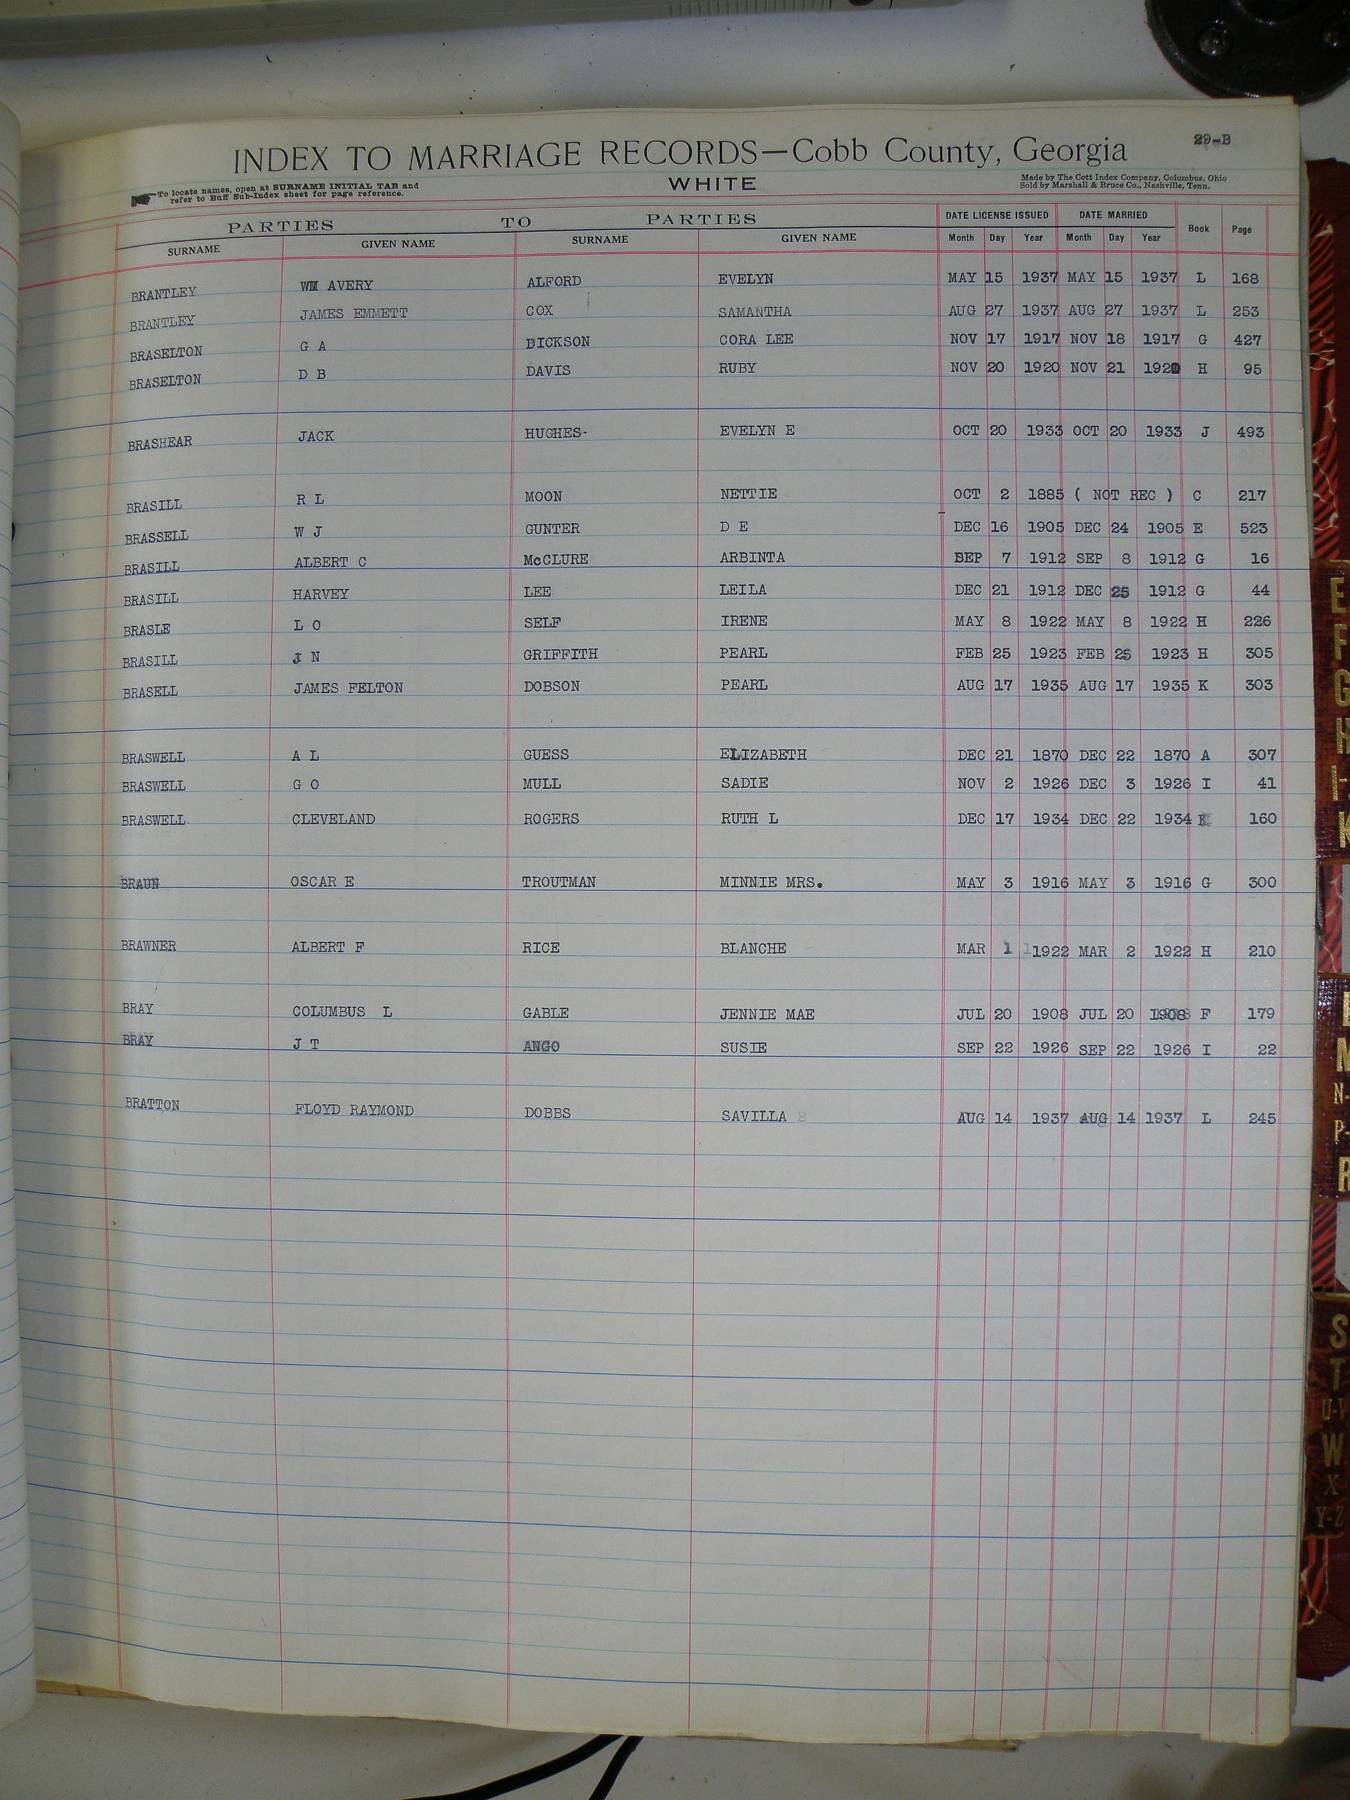 29-B
INDEX TO MARRIAGE RECORDS—Cobb County, Georgia
To locate names, open at SURNAME INITIAL TAB and
refer to Buff Sub-Index sheet for page reference.
WHITE
Made by The Cott Index Company, Columbus, Ohio
Sold by Marshall & Bruce Co., Nashville, Tenn.
PARTIES TO PARTIES DATE LICENSE ISSUED DATE MARRIED Book Page
SURNAME GIVEN NAME SURNAME GIVEN NAME Month Day Year Month Day Year
BRANTLEY WM AVERY ALFORD EVELYN MAY 15 1937 MAY 15 1937 L 168
BRANTLEY JAMES EMMETT COX SAMANTHA AUG 27 1937 AUG 27 1937 L 253
BRASELTON G A DICKSON CORA LEE NOV 17 1917 NOV 18 1917 G 427
BRASELTON D B DAVIS RUBY NOV 20 1920 NOV 21 1920 H 95
BRASHEAR JACK HUGHES- EVELYN E OCT 20 1933 OCT 20 1933 J 493
BRASILL R L MOON NETTIE OCT 2 1885 ( NOT REC ) C 217
BRASSELL W J GUNTER D E DEC 16 1905 DEC 24 1905 E 523
BRASILL ALBERT C McCLURE ARBINTA SEP 7 1912 SEP 8 1912 G 16
BRASILL HARVEY LEE LEILA DEC 21 1912 DEC 25 1912 G 44
BRASLE L O SELF IRENE MAY 8 1922 MAY 8 1922 H 226
BRASILL J N GRIFFITH PEARL FEB 25 1923 FEB 25 1923 H 305
BRASELL JAMES FELTON DOBSON PEARL AUG 17 1935 AUG 17 1935 K 303
BRASWELL A L GUESS ELIZABETH DEC 21 1870 DEC 22 1870 A 307
BRASWELL G O MULL SADIE NOV 2 1926 DEC 3 1926 I 41
BRASWELL CLEVELAND ROGERS RUTH L DEC 17 1934 DEC 22 1934 K 160
BRAUN OSCAR E TROUTMAN MINNIE MRS. MAY 3 1916 MAY 3 1916 G 300
BRAWNER ALBERT F RICE BLANCHE MAR 1 1922 MAR 2 1922 H 210
BRAY COLUMBUS L GABLE JENNIE MAE JUL 20 1908 JUL 20 1908 F 179
BRAY J T ANGO SUSIE SEP 22 1926 SEP 22 1926 I 22
BRATTON FLOYD RAYMOND DOBBS SAVILLA AUG 14 1937 AUG 14 1937 L 245
E
F
G
H
K
M
N-
P-
R
S
T
U-V
W
X
Y-Z